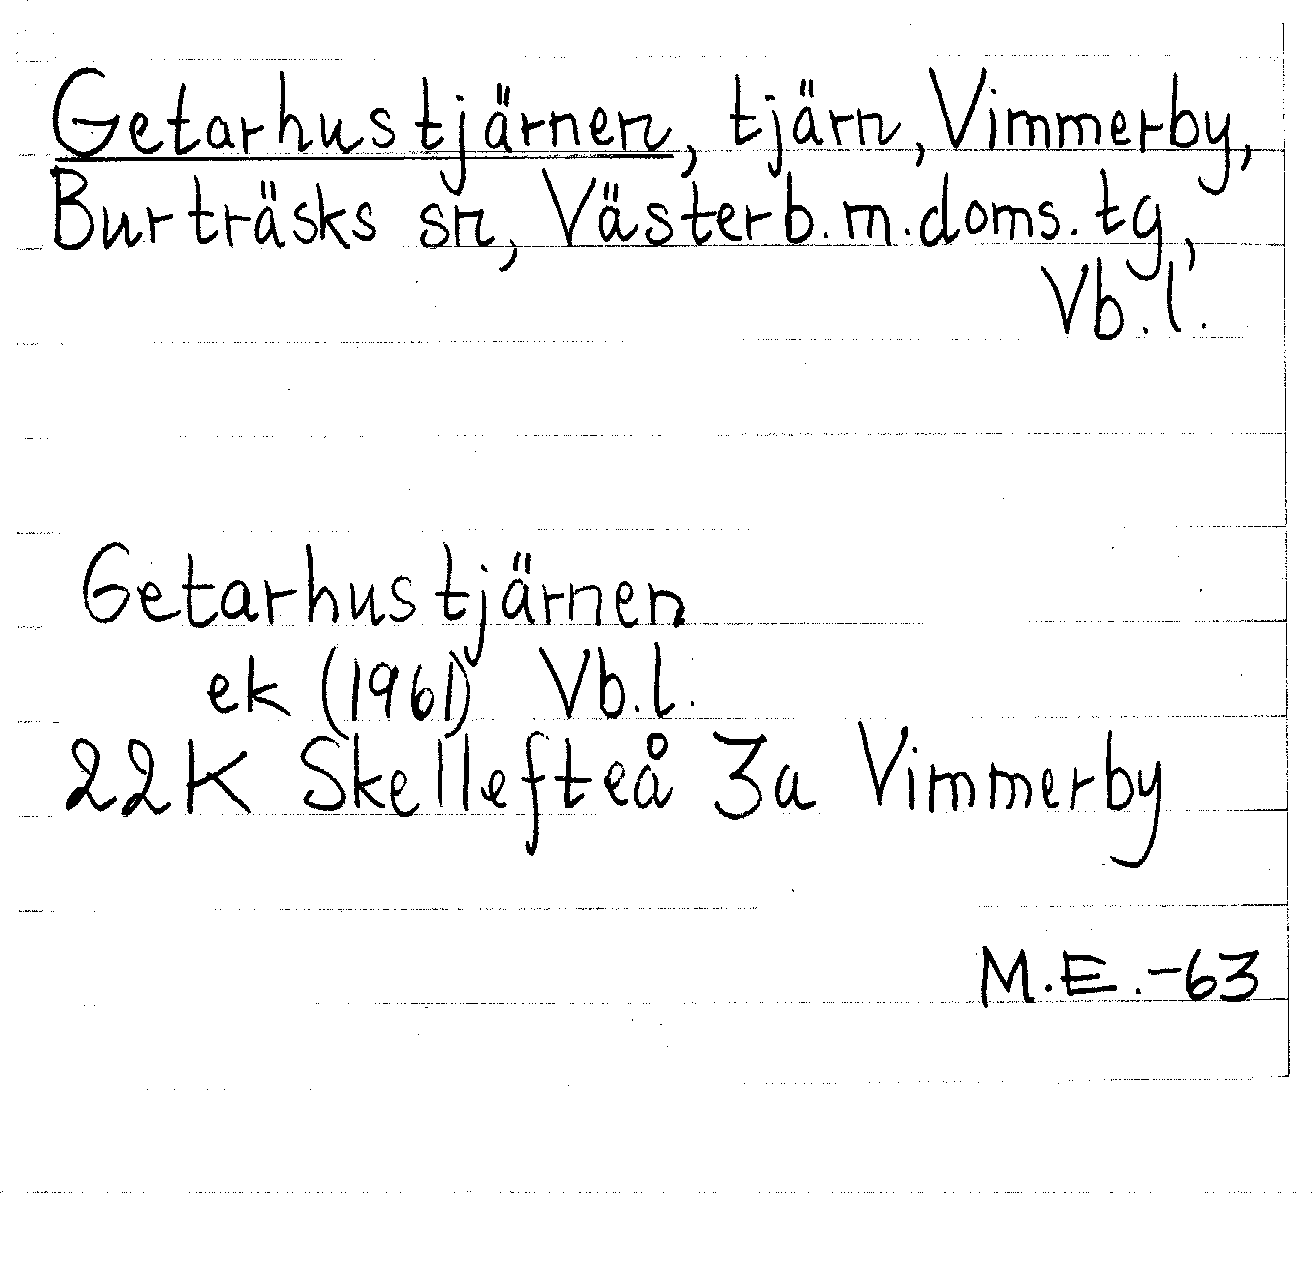 Getarhustjärnen, tjärn, Vimmerby,
Burträsks sn, Västerb.m.doms.tg,
Vb.l.
Getarhustjärnen
ek (1961) Vb.l.
22K Skellefteå 3a Vimmerby
M.E.-63